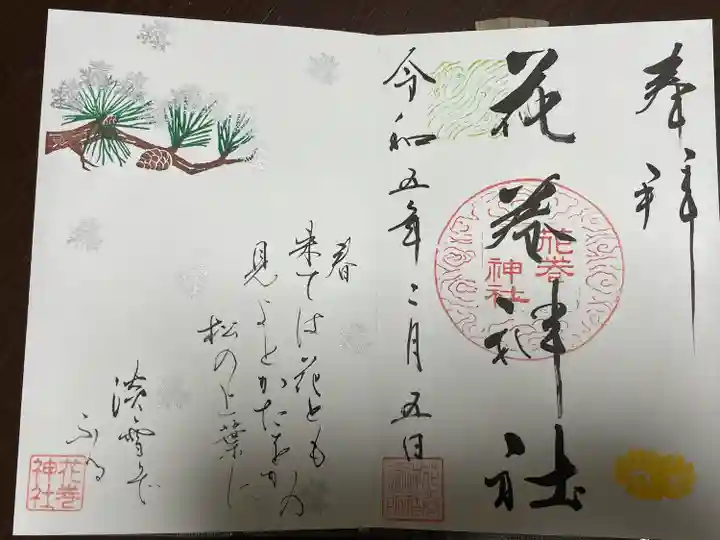 奉拝
花巻神社
花巻
神社
令和五年二月五日
春
来ては花とも
見よとかたをかの
松の上葉に
淡雪ぞ
ふる
花巻
神社